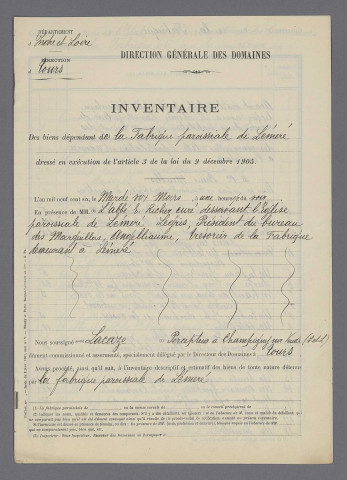 DÉPARTEMENT
d'Indre et Loire
DIRECTION
à Tours
DIRECTION GÉNÉRALE DES DOMAINES
INVENTAIRE
Des biens dépendant de la Fabrique paroissiale de Lémeré
dressé en exécution de l'article 3 de la loi du 9 décembre 1905.
L'an mil neuf cent six, le Mardi six Mars, à une heure du soir
En présence de MM. L'abbé E. Richer, curé desservant l'Eglise
paroissiale de Lémeré, Legros, Président du bureau
des Marguilliers, Trésorier de la Fabrique
demeurant à Lémeré
Nous soussigné Lacaze Percepteur à Champigny sur Veude (I&L)
dûment commissionné et assermenté, spécialement délégué par le Directeur des Domaines à Tours
Avons procédé, ainsi qu'il suit, à l'inventaire descriptif et estimatif des biens de toute nature détenus
par la fabrique paroissiale de Lémeré